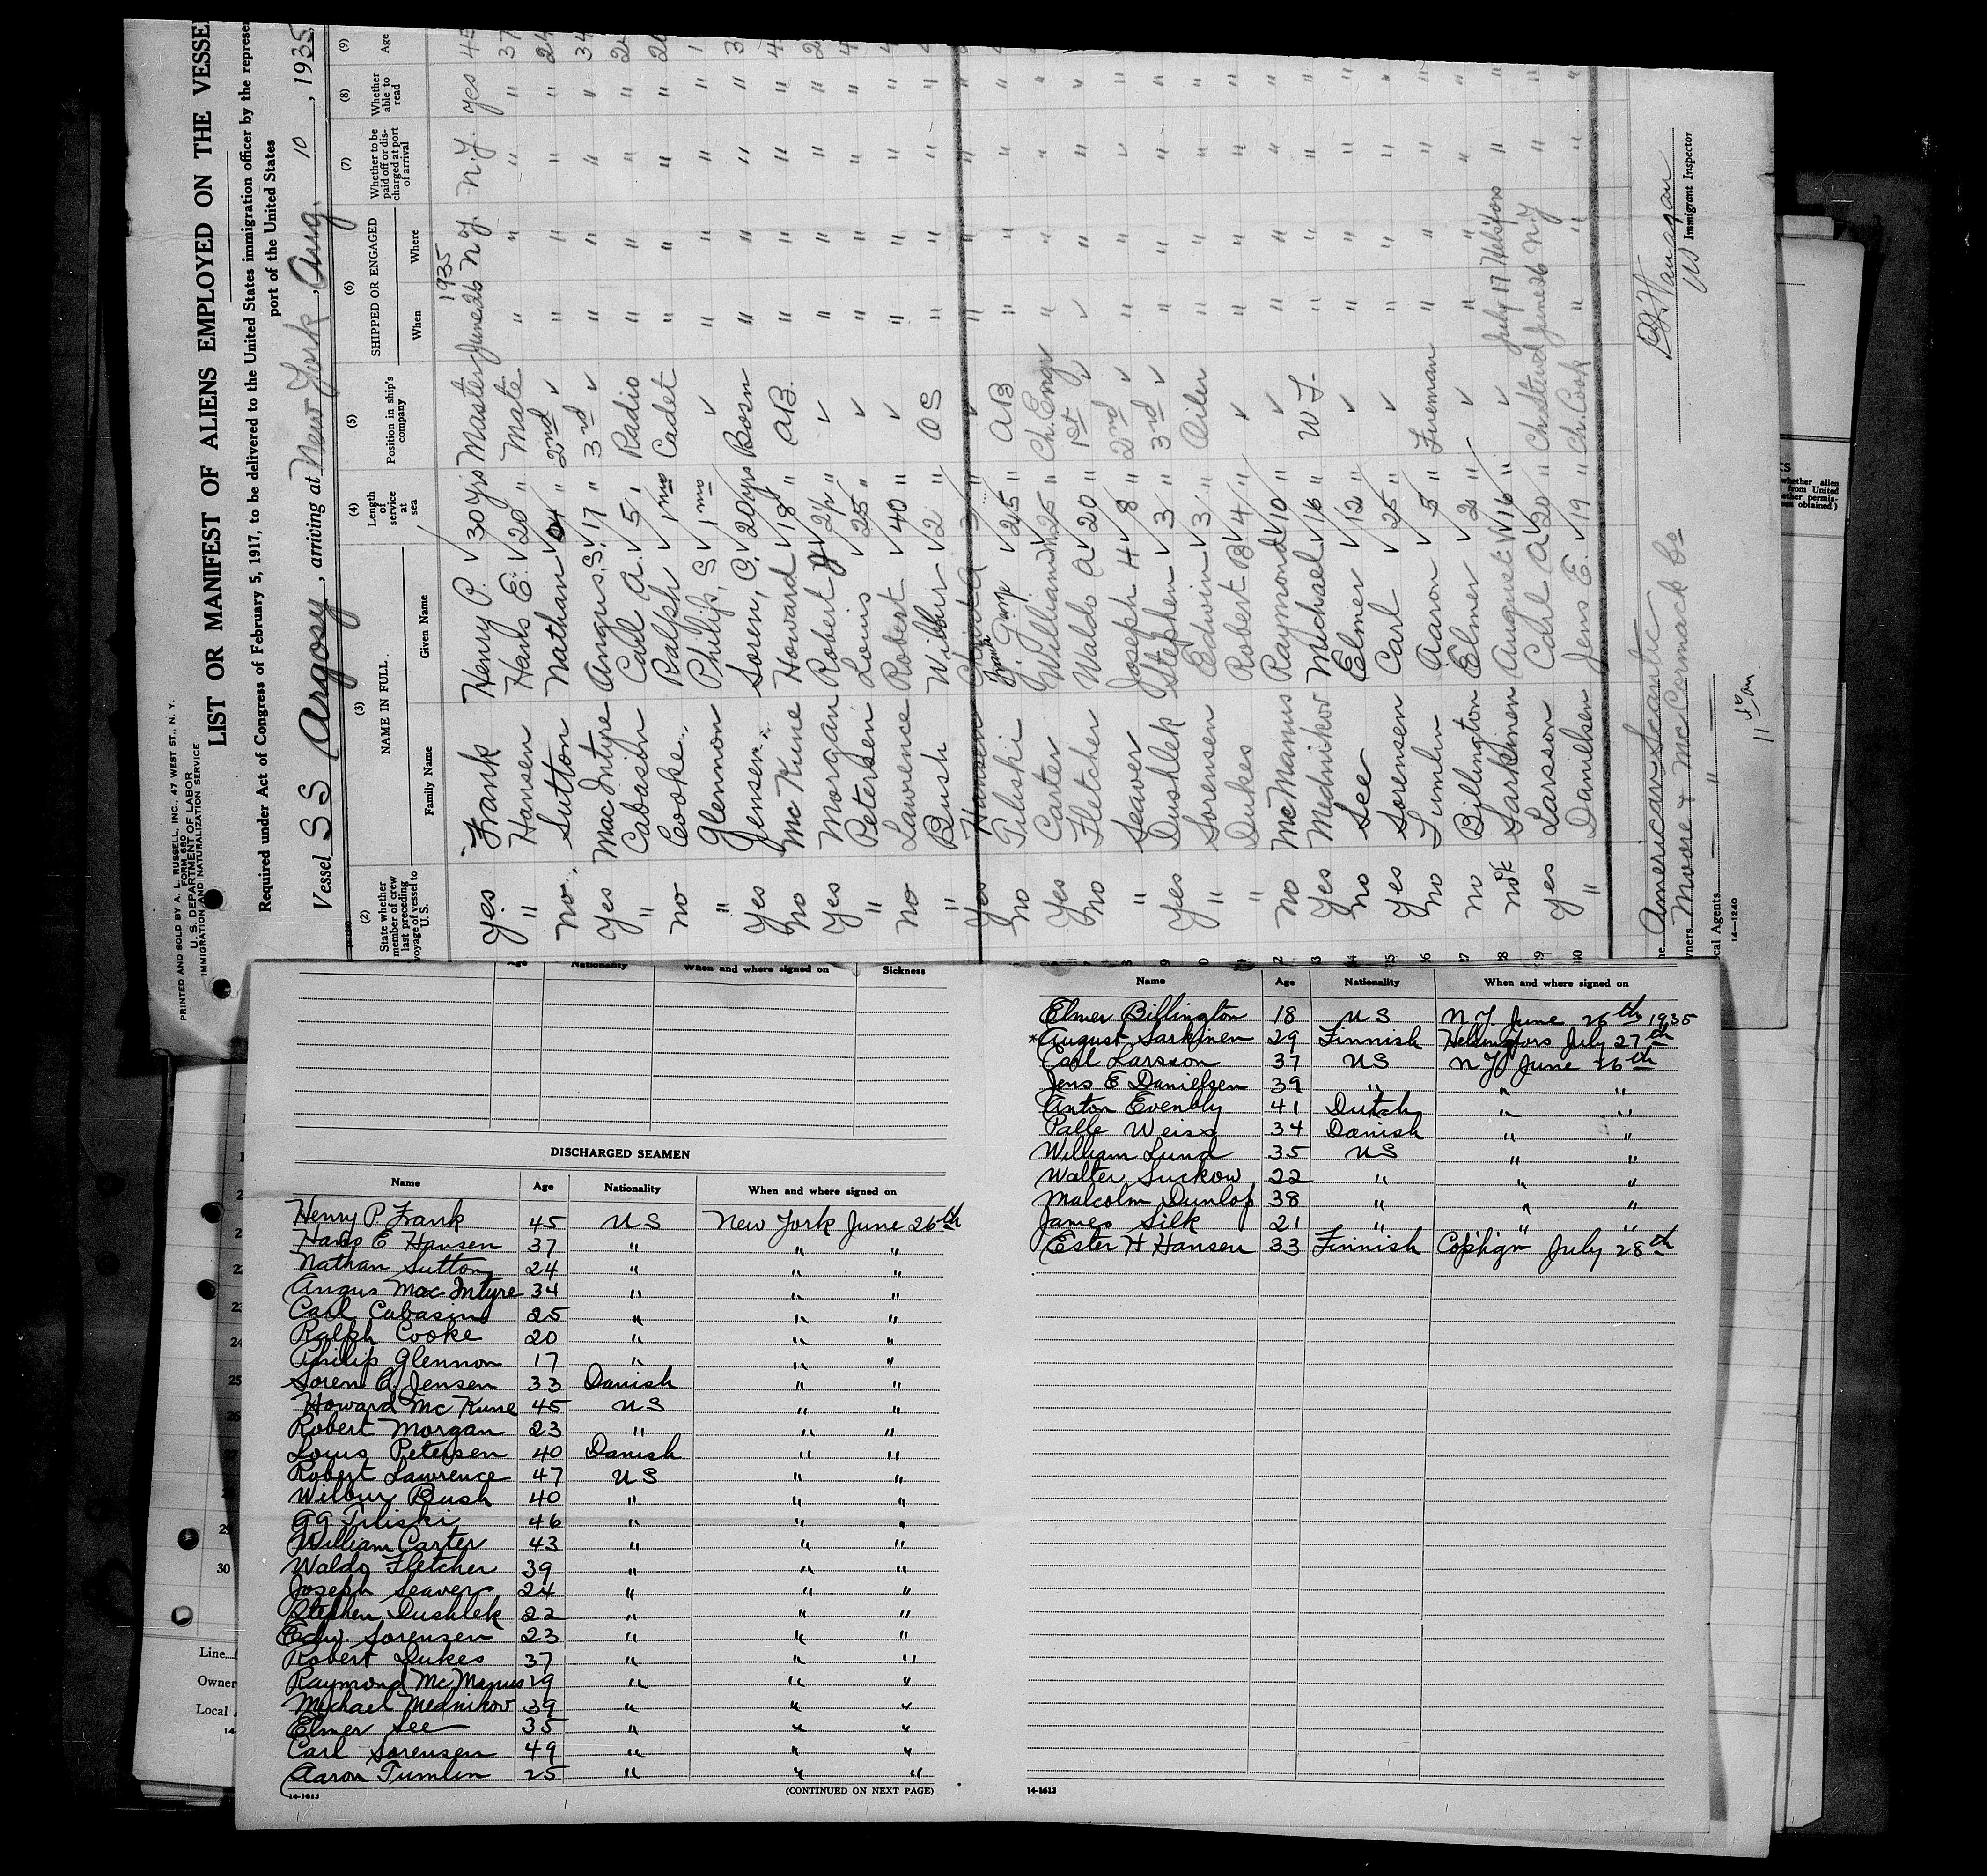 PRINTED AND SOLD BY A. L. RUSSELL, INC., 47 WEST ST., N. Y.
FORM 680
U. S. DEPARTMENT OF LABOR
IMMIGRATION AND NATURALIZATION SERVICE
LIST OR MANIFEST OF ALIENS EMPLOYED ON THE VESSE
Required under Act of Congress of February 5, 1917, to be delivered to the United States immigration officer by the represe
port of the United States
Vessel SS Argosy, arriving at New York, Aug. 10, 1935
(2) (3) (4) (5) (6) (7) (8) (9)
State whether member of crew last preceding voyage of vessel to U.S. NAME IN FULL Family Name Given Name Length of service at sea Position in ship's company SHIPPED OR ENGAGED When Where Whether to be paid off or discharged at port of arrival Whether able to read Age
1935
Yes Frank Henry P. 30 yrs Master June 26 N.Y. N.Y. yes 45
" Hansen Hans E. 20 " Mate " " " " 37
No Sutton Nathan 04 " 2nd " " " " 24
Yes MacIntyre Angus, S. 17 " 3rd " " " " 34
" Cabasin Carl A. 5 " Radio " " " "
No Cooke Ralph 1 mo Cadet " " " "
" Glennon Philip, S 1 mo " " " "
Yes Jensen Soren, C. 20 yrs Bosn " " " "
No McKune Howard 18 " AB. " " " "
Yes Morgan Robert 2½ " " " " "
" Petersen Louis 25 " " " " "
No Lawrence Robert 40 " " " " "
" Bush Wilbur 2 " OS " " " "
Yes Hansen 3 " " " " "
No Tiliski G. 25 " AB " " " "
Yes Carter William 25 " Ch. Engr " " " "
No Fletcher Waldo A 20 " 1st " " "
" Seaver Joseph H 8 " 2nd " " " "
Yes Dushlek Stephen 3 " 3rd " " " "
" Sorensen Edwin 3 " Oiler " " " "
" Dukes Robert B 4 " " " " "
No McManus Raymond 10 " " " " "
Yes Mednikov Michael 16 " W T. " " " "
No See Elmer 12 " " " " "
Yes Sorensen Carl 25 " " " " "
No Tumlin Aaron 5 " Fireman " " " "
No Billington Elmer 2 " " " " "
Sarkinen August E 16 " July 17 Helsifors " "
Yes Larsson Carl A 20 " Ch. Steward June 26 N.Y " "
" Danielsen Jens E. 19 " Ch. Cook " " " "
American Scantic
Moore & McCormack Co
cal Agents "
14—1240
Immigrant Inspector
Age Nationality When and where signed on Sickness
DISCHARGED SEAMEN
Name Age Nationality When and where signed on
Henry P. Frank 45 US New York June 26th
Hans E Hansen 37 " " "
Nathan Sutton 24 " " "
Angus MacIntyre 34 " " "
Carl Cabasin 25 " " "
Ralph Cooke 20 " " "
Philip Glennon 17 " " "
Soren C. Jensen 33 Danish " "
Howard McKune 45 US " "
Robert Morgan 23 " " "
Louis Petersen 40 Danish " "
Robert Lawrence 47 US " "
Wilbur Bush 40 " " "
GG Tiliski 46 " " "
William Carter 43 " " "
Waldo Fletcher 39 " " "
Joseph Seaver 24 " " "
Stephen Dushlek 22 " " "
Edw. Sorensen 23 " " "
Robert Dukes 37 " " "
Raymond McManus 29 " " "
Michael Mednikov 39 " " "
Elmer See 35 " " "
Carl Sorensen 49 " " "
Aaron Tumlin 25 " " "
14-1613 (CONTINUED ON NEXT PAGE)
Name Age Nationality When and where signed on
Elmer Billington 18 US N.Y. June 26th 1935
*August Sarkinen 29 Finnish Helsingfors July 27th
Carl Larsson 37 US N.Y. June 26th
Jens E Danielsen 39 " " "
Anton Evenbly 41 Dutch " "
Palle Weiss 34 Danish " "
William Lund 35 US " "
Walter Suckow 22 " " "
Malcolm Dunlop 38 " " "
James Silk 21 " " "
Ester H Hansen 33 Finnish Cop'h'gn July 28th
14-1613
Line
Owner
Local